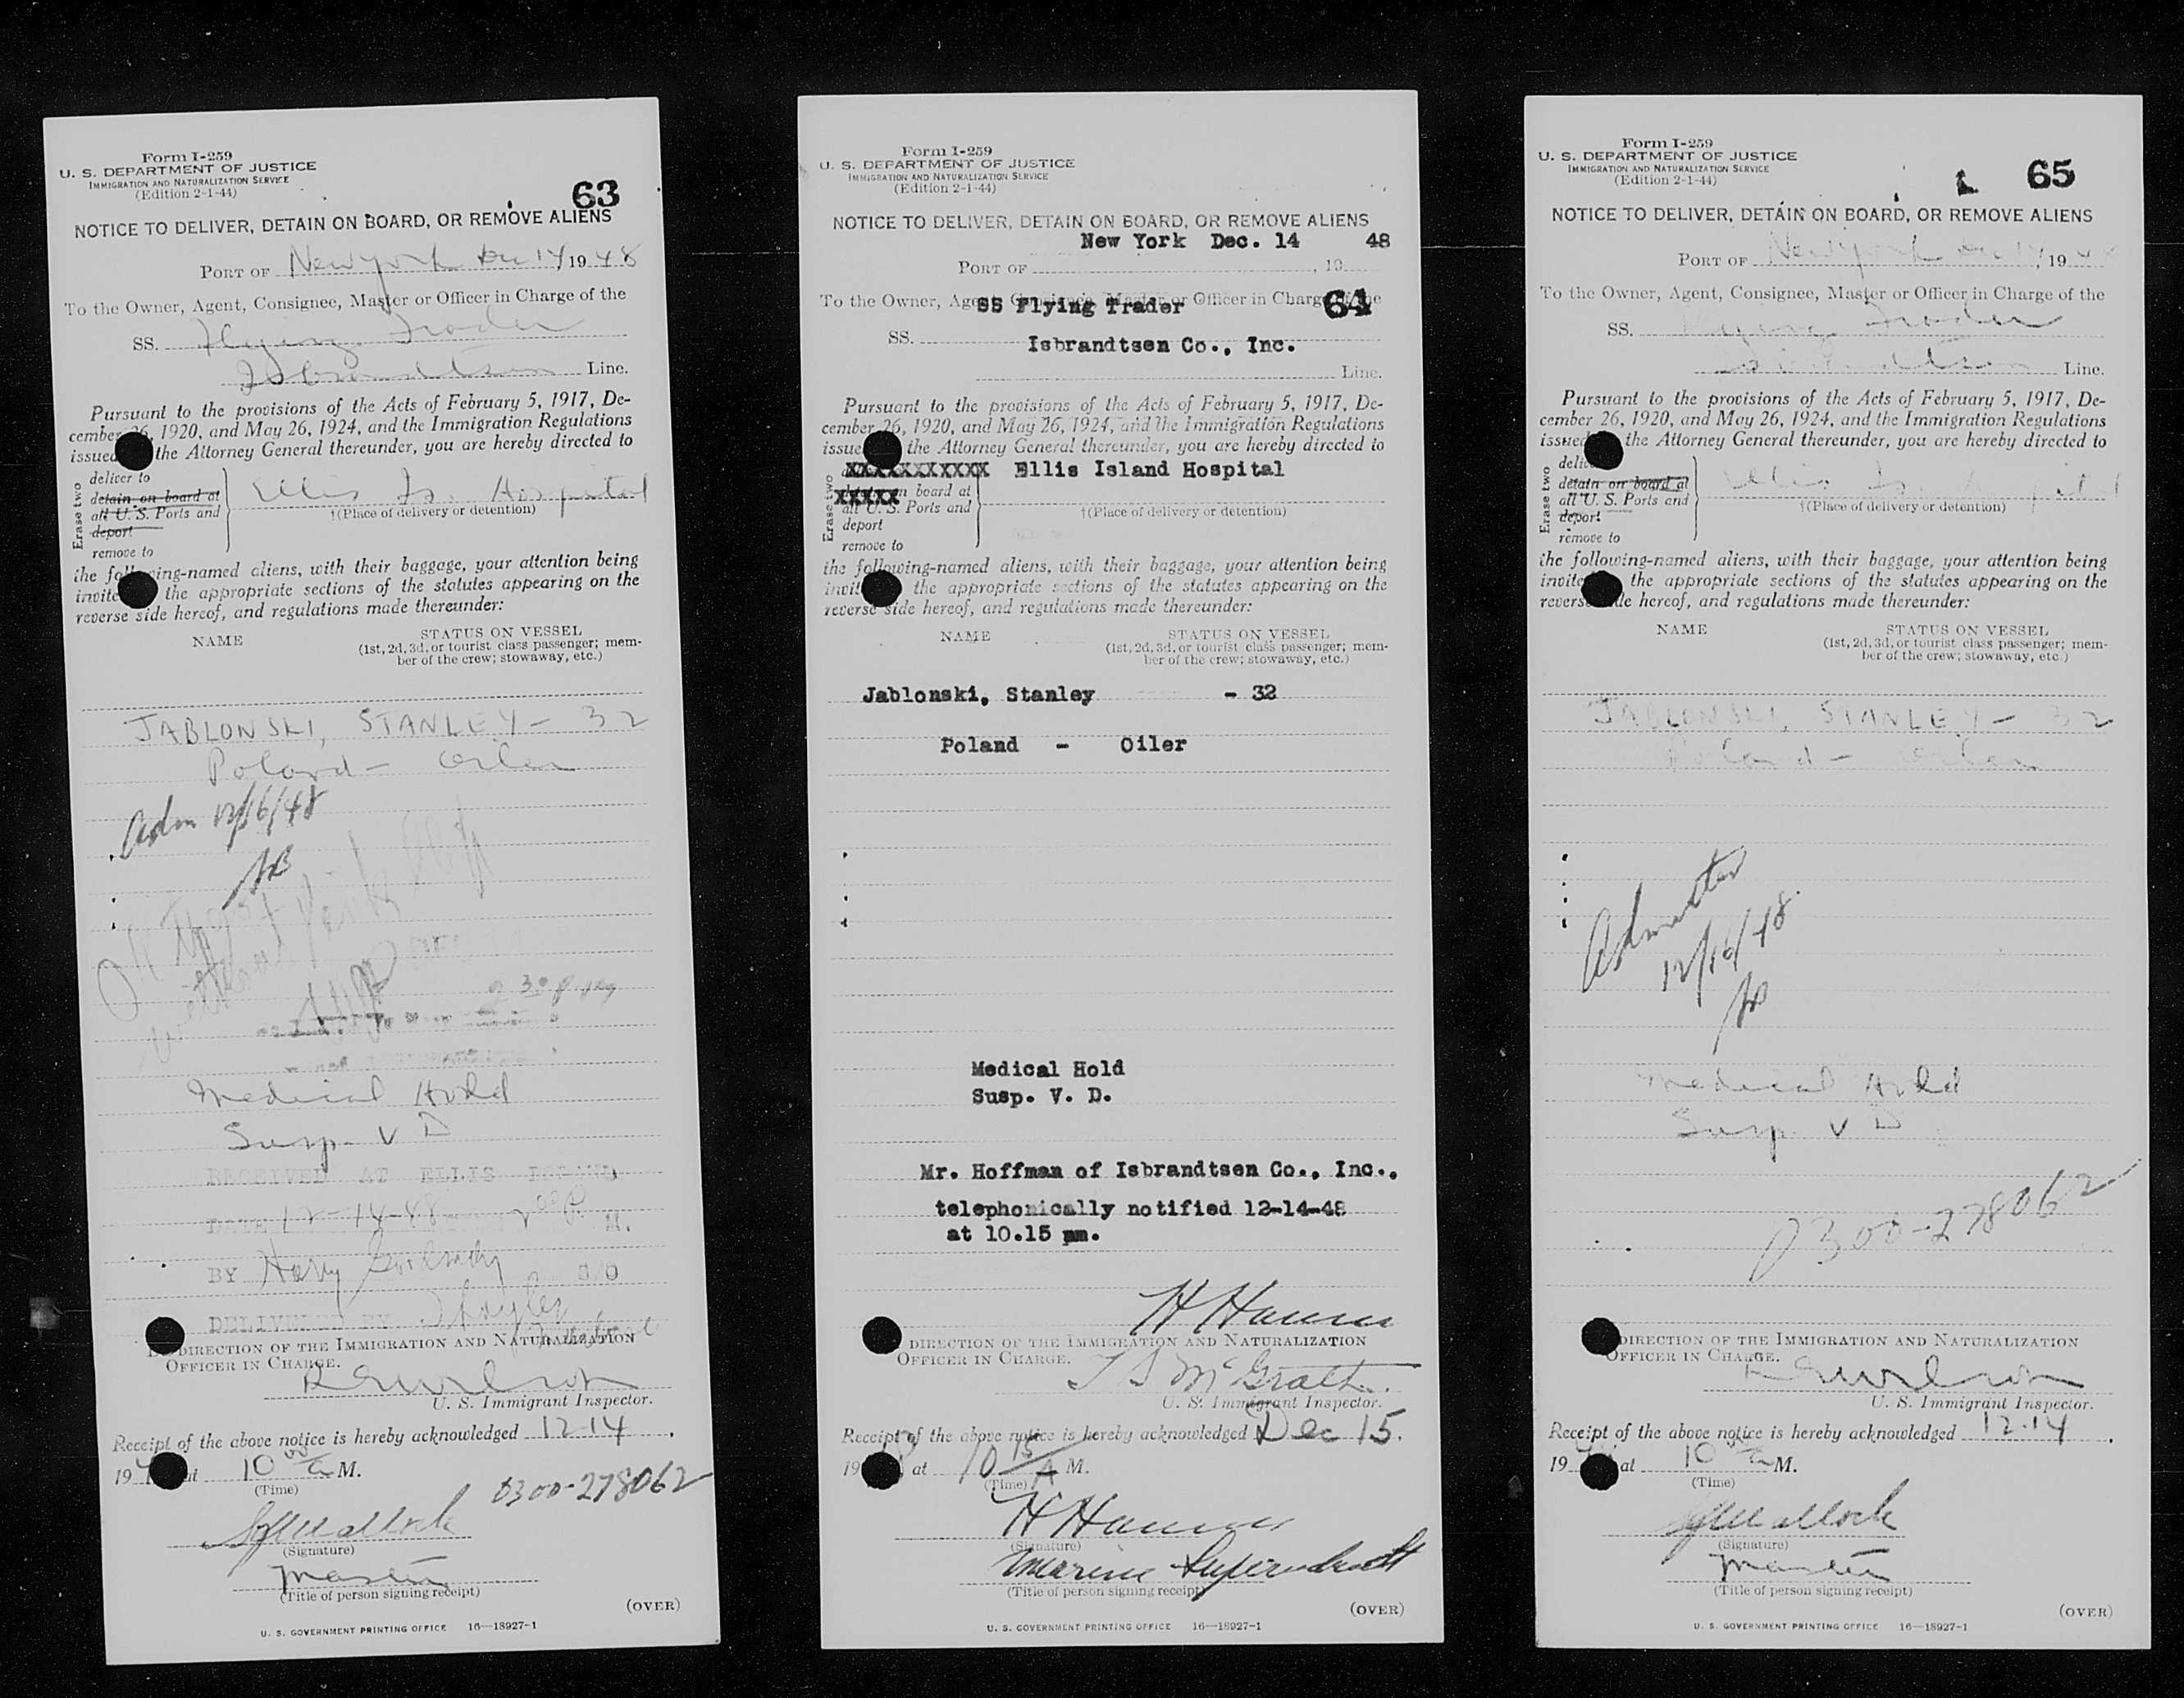 Form I-259
U. S. DEPARTMENT OF JUSTICE
IMMIGRATION AND NATURALIZATION SERVICE
(Edition 2-1-44)
63
NOTICE TO DELIVER, DETAIN ON BOARD, OR REMOVE ALIENS
PORT OF New York Dec 14 1948
To the Owner, Agent, Consignee, Master or Officer in Charge of the
SS. Flying Trader
Isbrandtsen Line.
Pursuant to the provisions of the Acts of February 5, 1917, De-
cember 26, 1920, and May 26, 1924, and the Immigration Regulations
issued the Attorney General thereunder, you are hereby directed to
Erase two
deliver to
detain on board at
all U. S. Ports and
deport
remove to
Ellis Is. Hospital
†(Place of delivery or detention)
the following-named aliens, with their baggage, your attention being
invite the appropriate sections of the statutes appearing on the
reverse side hereof, and regulations made thereunder:
NAME
STATUS ON VESSEL
(1st, 2d, 3d, or tourist class passenger; mem-
ber of the crew; stowaway, etc.)
JABLONSKI, STANLEY - 32
Poland - Oiler
Adm 12/16/48
Medical Hold
Susp. V D
RECEIVED AT ELLIS ISLAND
DATE 12-14-48 M.
BY Harry
DELIVERED BY
DIRECTION OF THE IMMIGRATION AND NATURALIZATION
OFFICER IN CHARGE.
U. S. Immigrant Inspector.
Receipt of the above notice is hereby acknowledged 12-14,
19 at 10 00 A M.
(Time)
0300-278062
(Signature)
Master
(Title of person signing receipt)
(OVER)
U. S. GOVERNMENT PRINTING OFFICE 16—18927-1
Form I-259
U. S. DEPARTMENT OF JUSTICE
IMMIGRATION AND NATURALIZATION SERVICE
(Edition 2-1-44)
NOTICE TO DELIVER, DETAIN ON BOARD, OR REMOVE ALIENS
New York Dec. 14 48
PORT OF , 19
To the Owner, Agent, Consignee, Master or Officer in Charge of the
64
SS Flying Trader
SS.
Isbrandtsen Co., Inc.
Line.
Pursuant to the provisions of the Acts of February 5, 1917, De-
cember 26, 1920, and May 26, 1924, and the Immigration Regulations
issue the Attorney General thereunder, you are hereby directed to
Erase two
XXXXXXXXXXX Ellis Island Hospital
XXXXX on board at
all U. S. Ports and
deport
remove to
†(Place of delivery or detention)
the following-named aliens, with their baggage, your attention being
invit the appropriate sections of the statutes appearing on the
reverse side hereof, and regulations made thereunder:
NAME
STATUS ON VESSEL
(1st, 2d, 3d, or tourist class passenger; mem-
ber of the crew; stowaway, etc.)
Jablonski, Stanley - 32
Poland - Oiler
Medical Hold
Susp. V. D.
Mr. Hoffman of Isbrandtsen Co., Inc.,
telephonically notified 12-14-48
at 10.15 pm.
DIRECTION OF THE IMMIGRATION AND NATURALIZATION
OFFICER IN CHARGE.
T S McGrath
U. S. Immigrant Inspector.
Receipt of the above notice is hereby acknowledged Dec 15.
19 at 10 15 A M.
(Time)
(Signature)
Marine Superintendent
(Title of person signing receipt)
(OVER)
U. S. GOVERNMENT PRINTING OFFICE 16—18927-1
Form I-259
U. S. DEPARTMENT OF JUSTICE
IMMIGRATION AND NATURALIZATION SERVICE
(Edition 2-1-44)
65
NOTICE TO DELIVER, DETAIN ON BOARD, OR REMOVE ALIENS
PORT OF New York Dec 14, 194
To the Owner, Agent, Consignee, Master or Officer in Charge of the
SS. Flying Trader
Isbrandtsen Line.
Pursuant to the provisions of the Acts of February 5, 1917, De-
cember 26, 1920, and May 26, 1924, and the Immigration Regulations
issued the Attorney General thereunder, you are hereby directed to
Erase two
deli
detain on board at
all U. S. Ports and
deport
remove to
Ellis Is. Hospital
†(Place of delivery or detention)
the following-named aliens, with their baggage, your attention being
invite the appropriate sections of the statutes appearing on the
revers de hereof, and regulations made thereunder:
NAME
STATUS ON VESSEL
(1st, 2d, 3d, or tourist class passenger; mem-
ber of the crew; stowaway, etc.)
JABLONSKI, STANLEY - 32
Poland - Oiler
Admitted
12/16/48
Medical Hold
Susp. V D
0300-278062
DIRECTION OF THE IMMIGRATION AND NATURALIZATION
OFFICER IN CHARGE.
U. S. Immigrant Inspector.
Receipt of the above notice is hereby acknowledged 12-14,
19 at 10 00 A M.
(Time)
(Signature)
Master
(Title of person signing receipt)
(OVER)
U. S. GOVERNMENT PRINTING OFFICE 16—18927-1